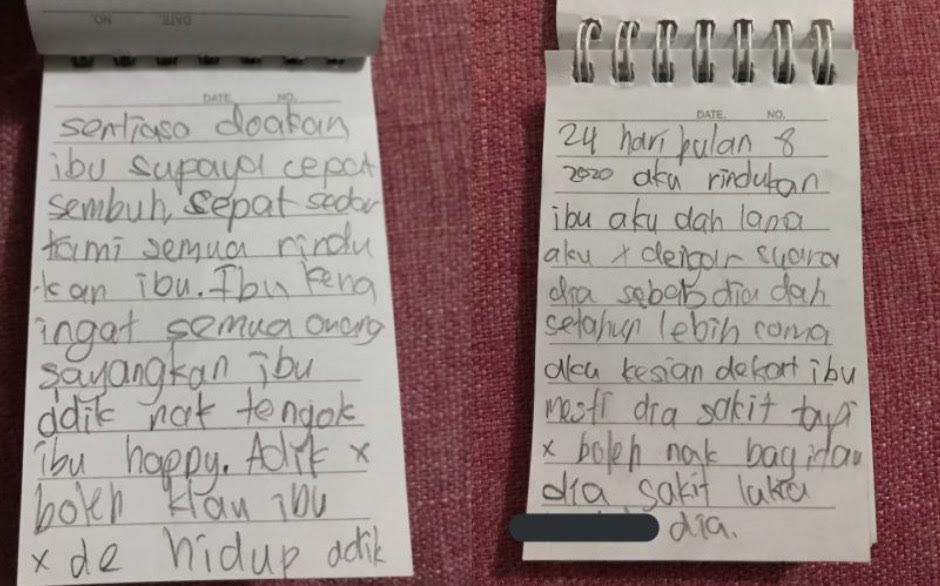 DATE NO.
sentiasa doakan
ibu supaya cepat
sembuh, cepat sedar
kami semua rindu
kan ibu. Ibu kena
ingat semua orang
sayangkan ibu
adik nak tengok
ibu happy. Adik x
boleh klau ibu
x de hidup adik
DATE. NO.
24 hari bulan 8
2020 aku rindukan
ibu aku dah lama
aku x dengar suara
dia sebab dia dah
setahun lebih coma
aku kesian dekat ibu
mesti dia sakit tapi
x boleh nak bagitau
dia sakit
dia.